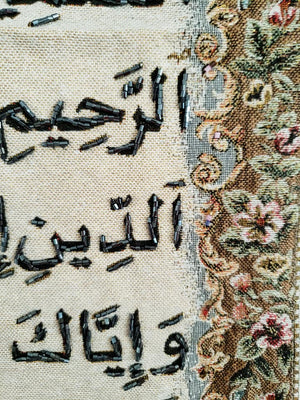 الرَّحِيمِ
الدِّينِ
وَإِيَّاكَ